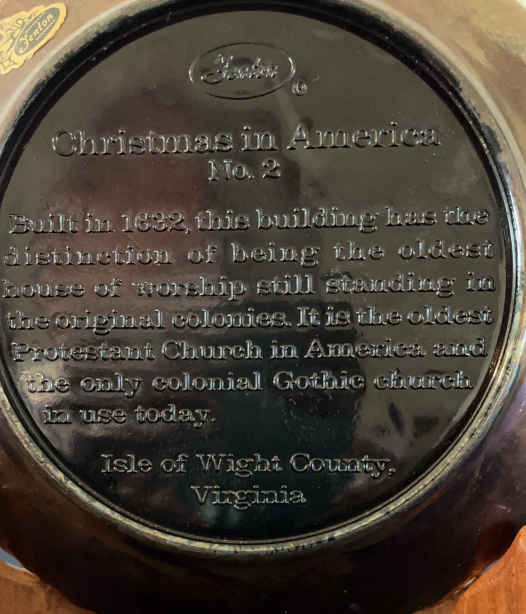 Fenton
Fenton
Christmas in America
No. 2
Built in 1632, this building has the
distinction of being the oldest
house of worship still standing in
the original colonies. It is the oldest
Protestant Church in America and
the only colonial Gothic church
in use today.
Isle of Wight County,
Virginia